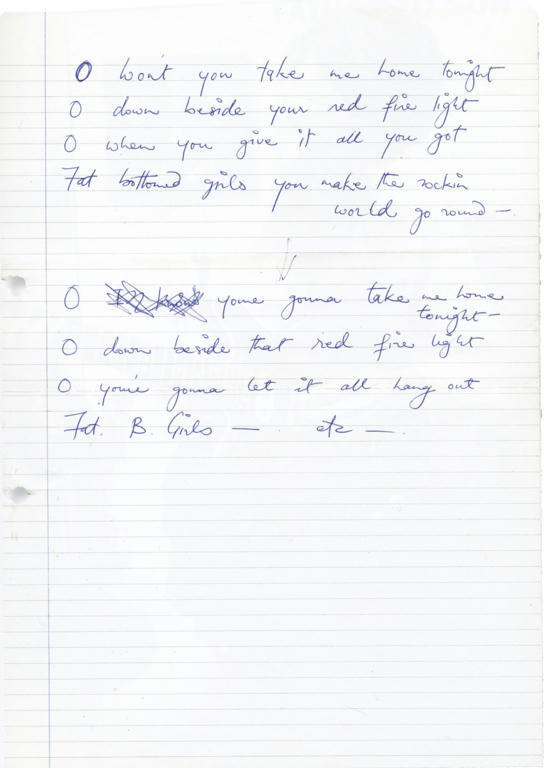 O won't you take me home tonight
O down beside your red fire light
O when you give it all you got
Fat bottomed girls you make the rockin
world go round —.
O you're gonna take me home
tonight —
O down beside that red fire light
O you're gonna let it all hang out
Fat. B. Girls — etc —.